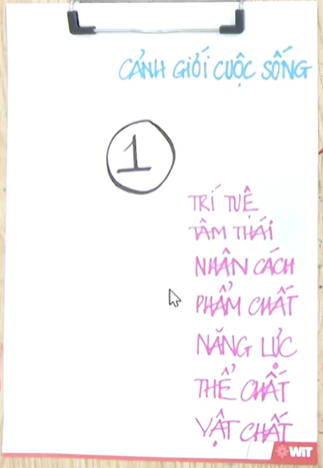 CẢNH GIỚI CUỘC SỐNG
1
TRÍ TUỆ
TÂM THÁI
NHÂN CÁCH
PHẨM CHẤT
NĂNG LỰC
THỂ CHẤT
VẬT CHẤT
WIT